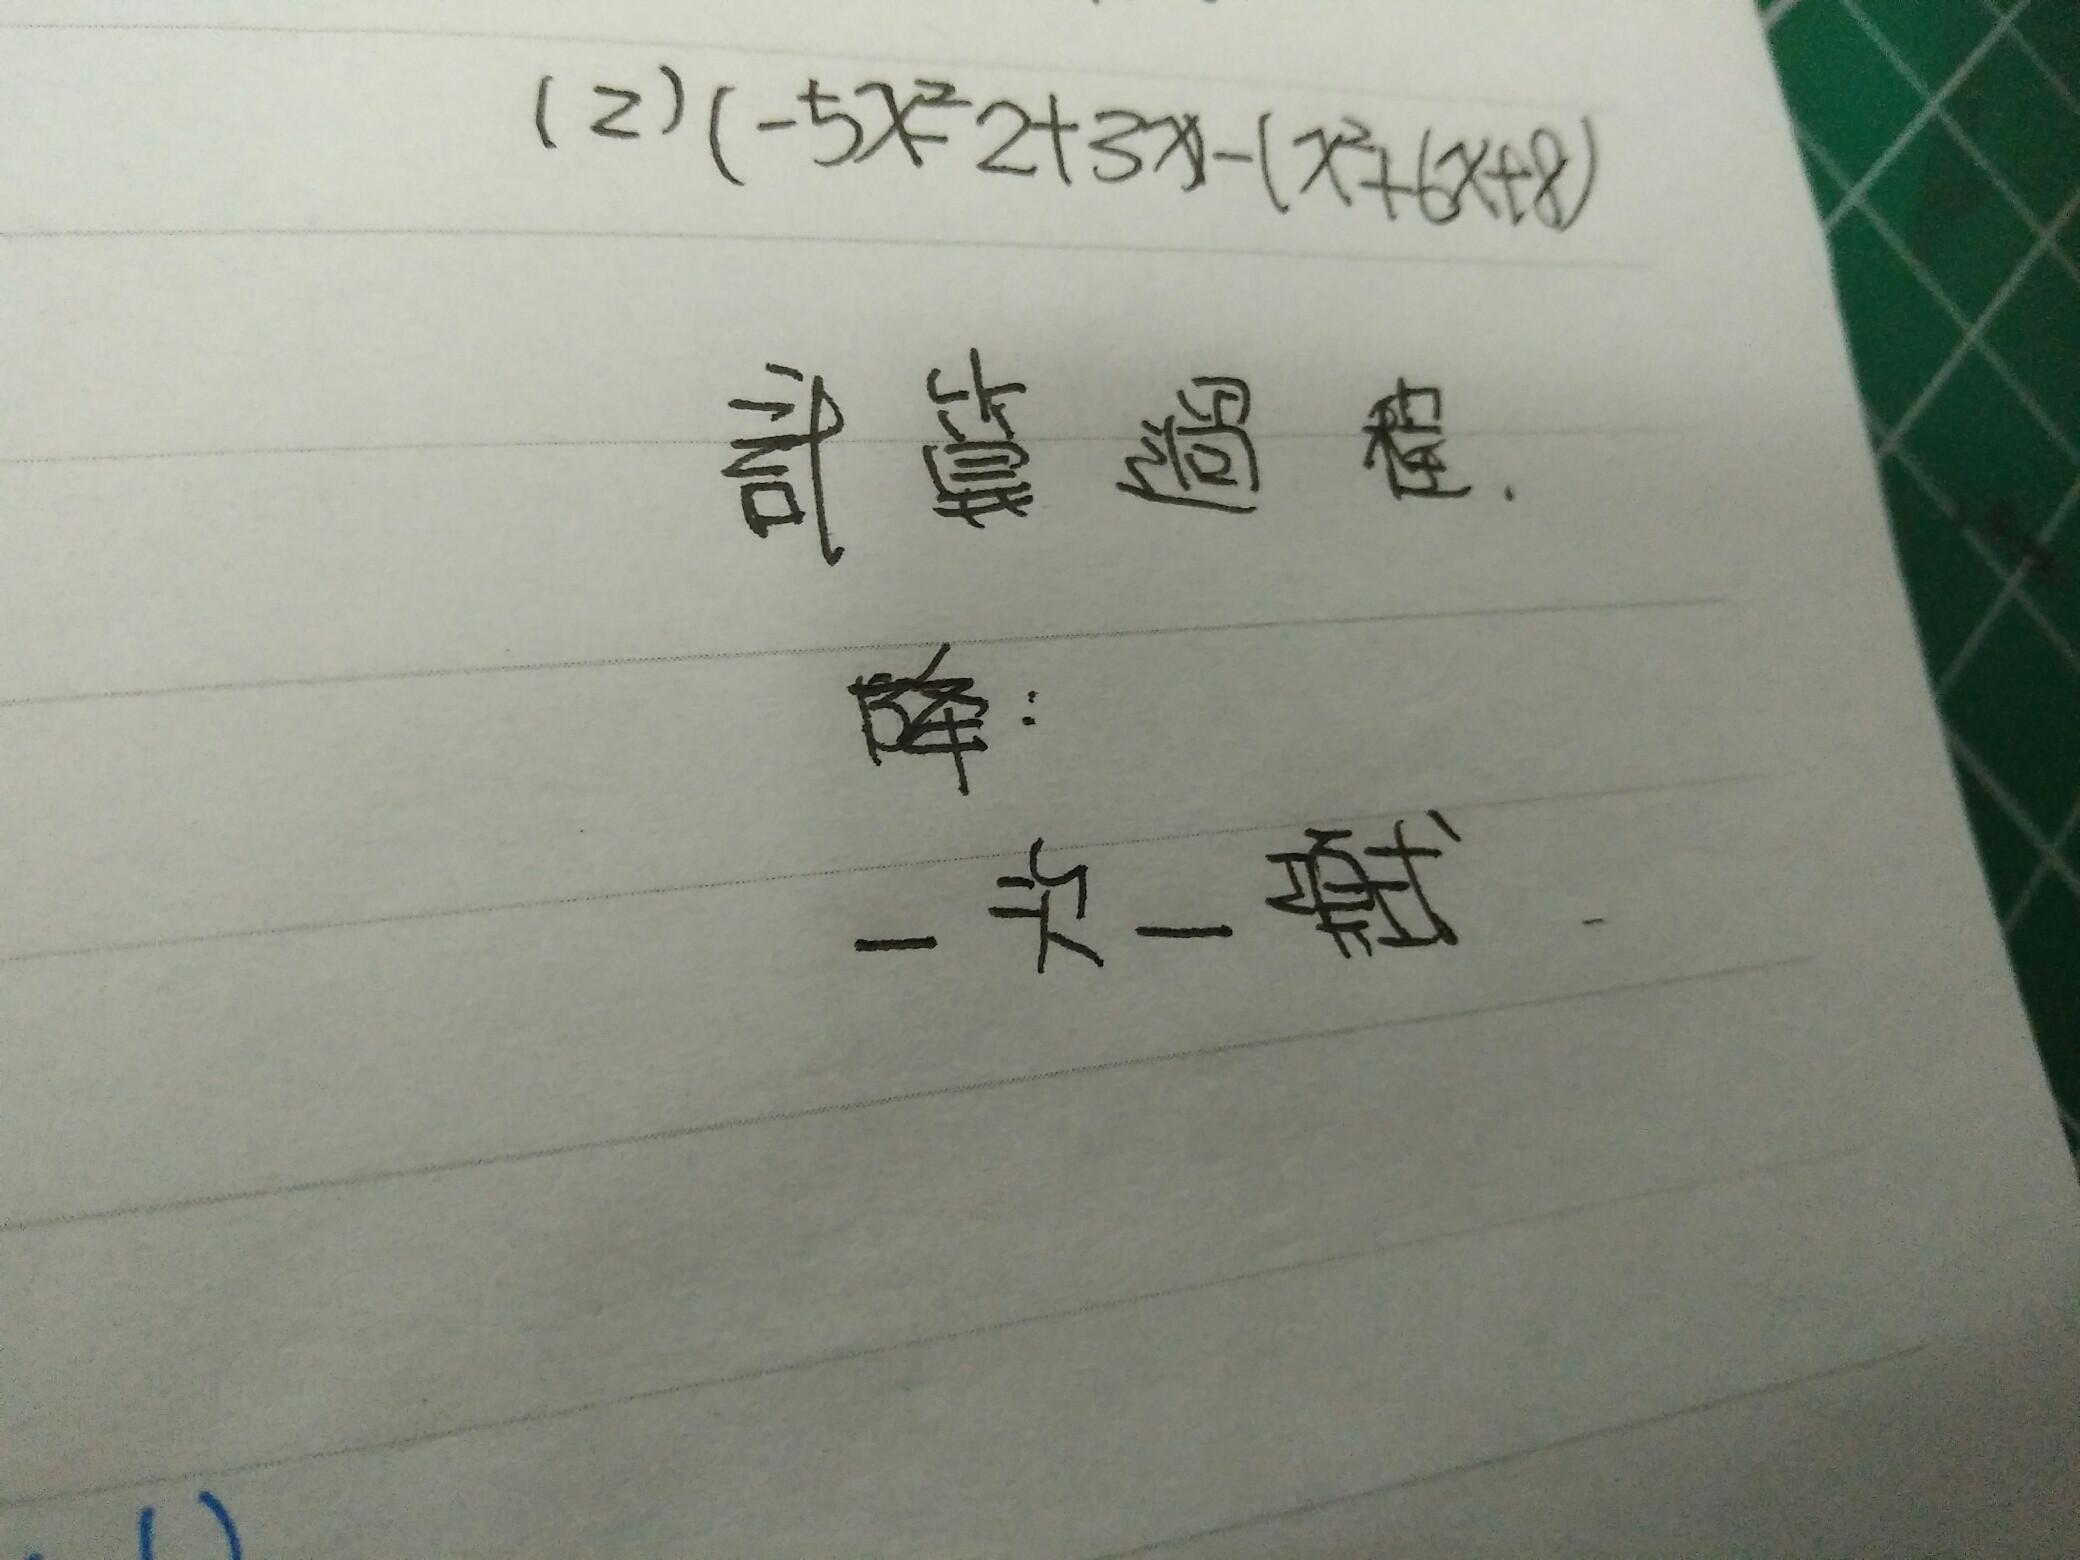 (2)(-5x²-2+3x)-(x²+6x+8)
計算過程.
降:
一次一